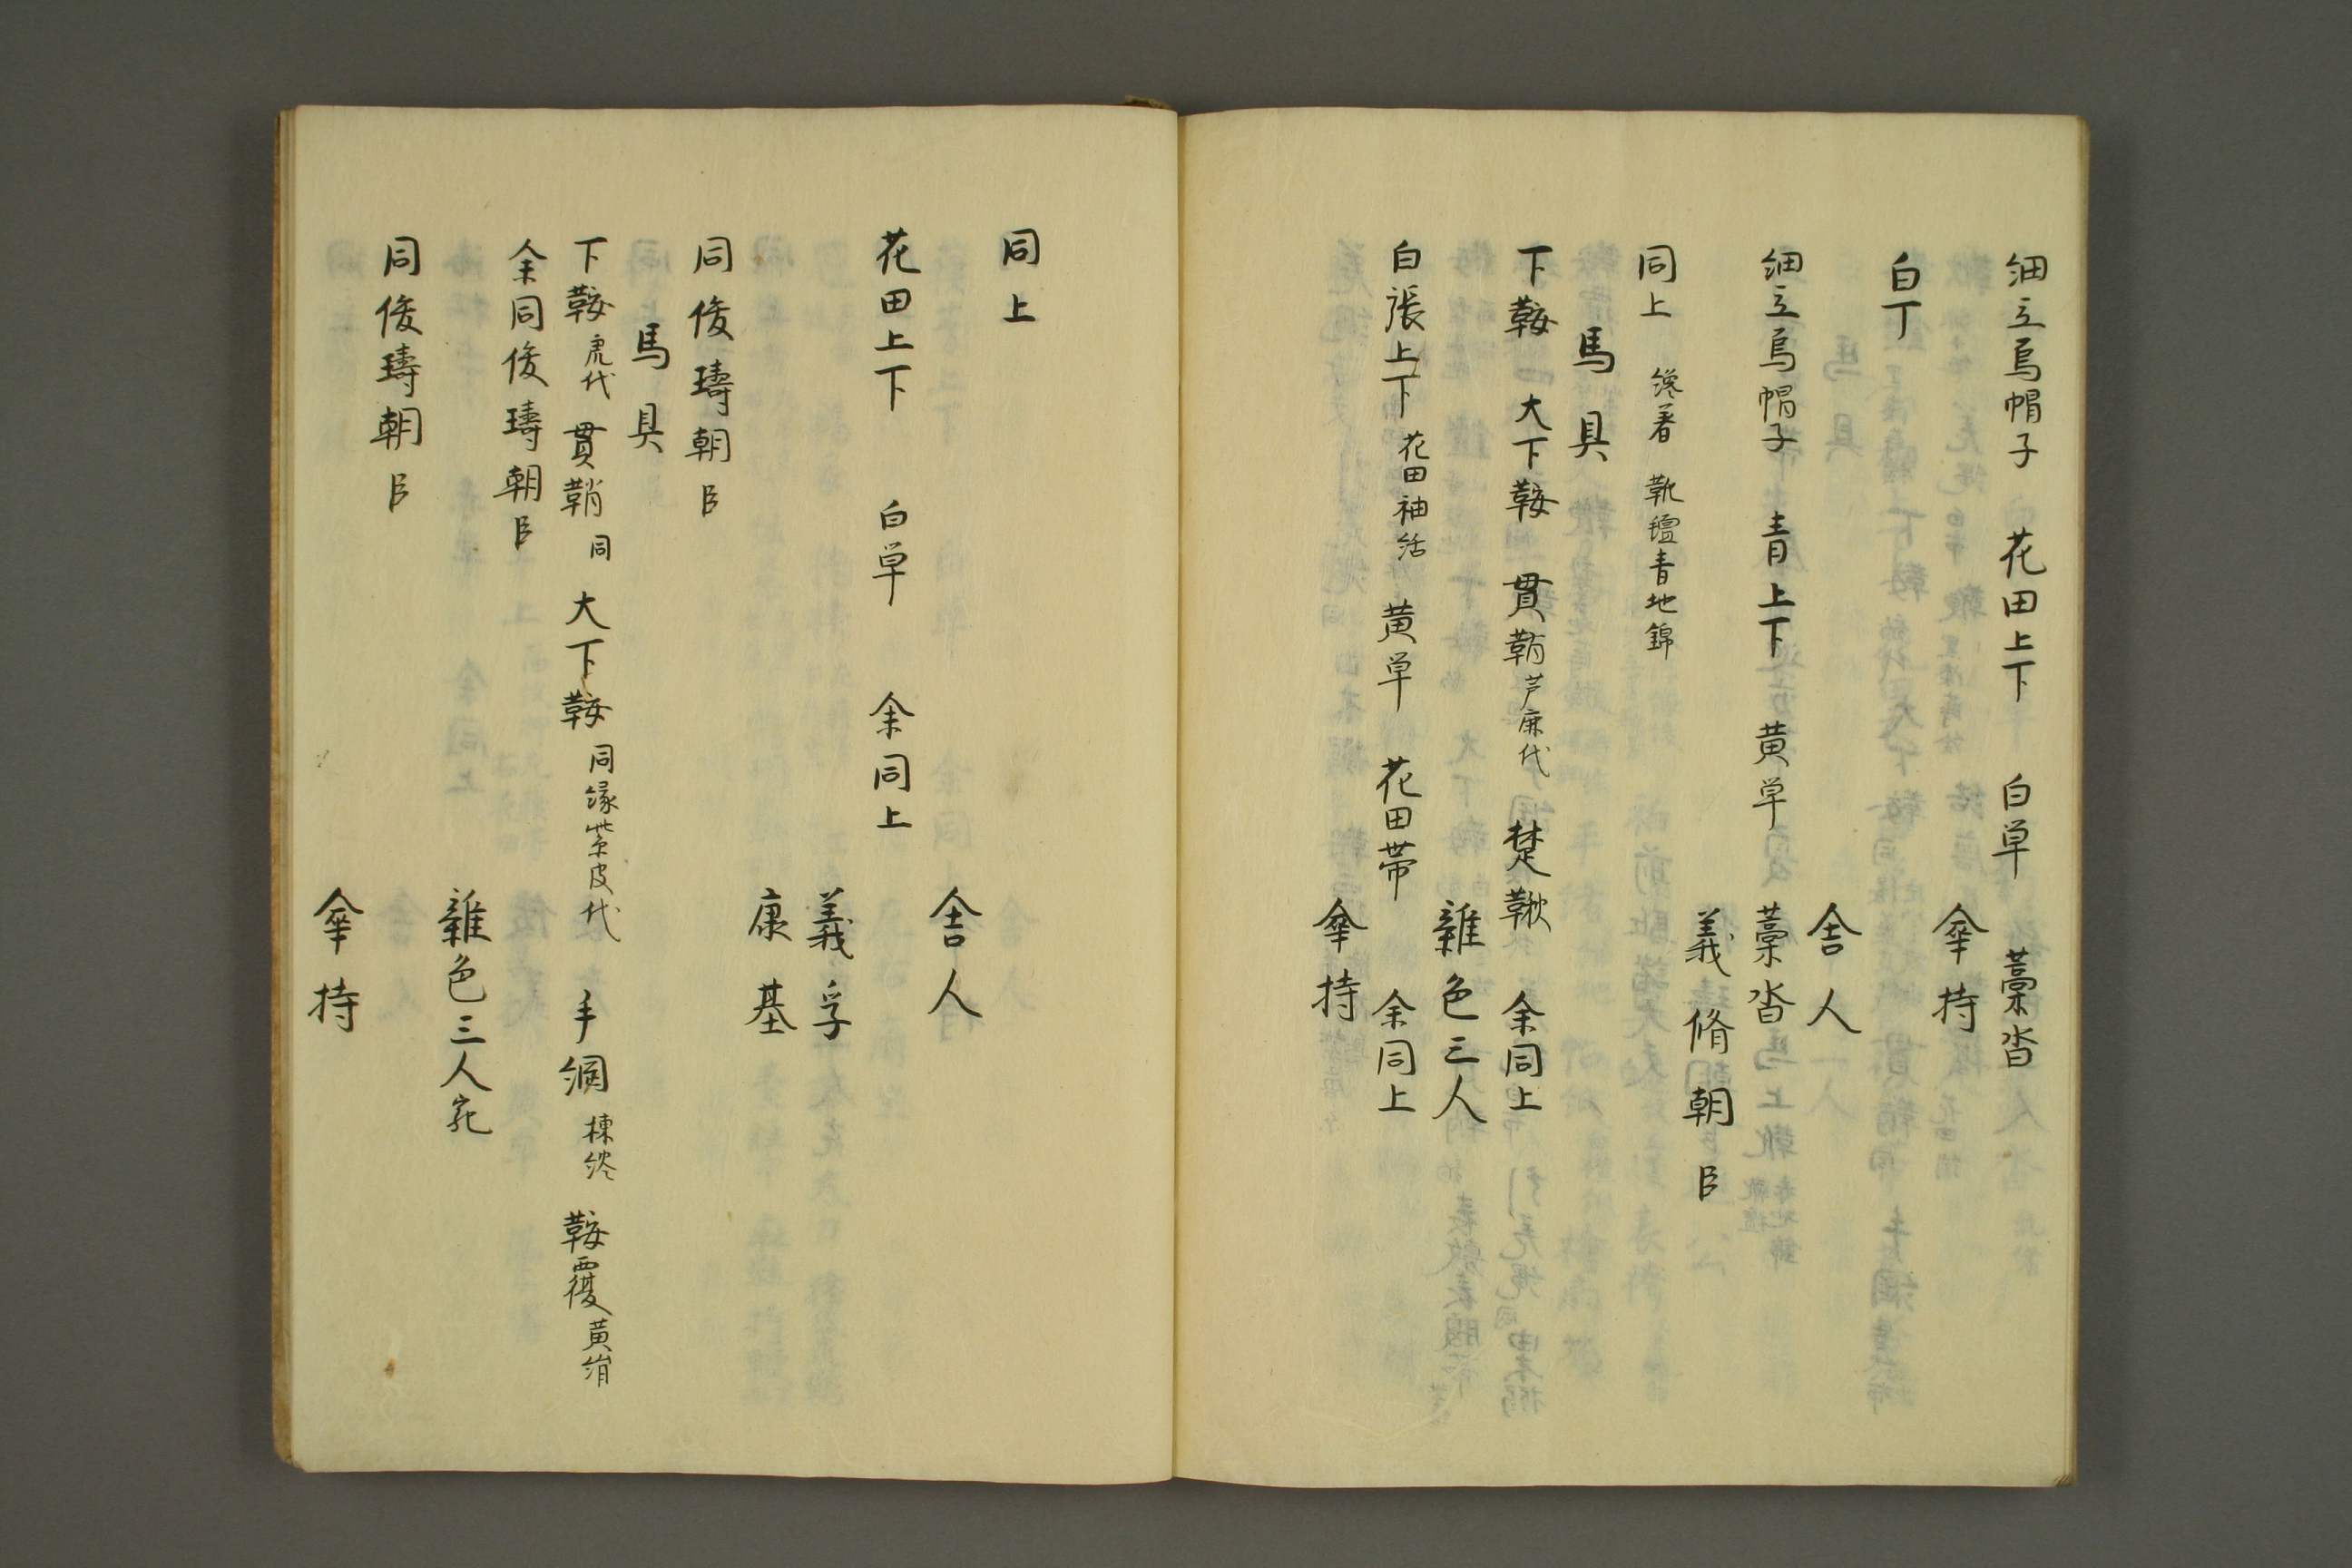 細立烏帽子 花田上下 白単 藁沓
傘持
白丁
舎人
細立烏帽子 青上下 黄単 藁沓
義脩朝臣
同上 纔著 靴氊青地錦
馬具
下鞍 大下鞍 貫鞘芦鹿代 楚鞦 余同上
白張上下 花田袖括 黄単 花田帯 余同上
雑色三人
傘持
同上
舎人
花田上下 白単 余同上
義孚
康基
同俊璹朝臣
馬具
下鞍虎代 貫鞘同 大下鞍同縁紫皮代 手綱楝 鞍覆黄絹
余同俊璹朝臣
雑色三人宛
同俊璹朝臣
傘持